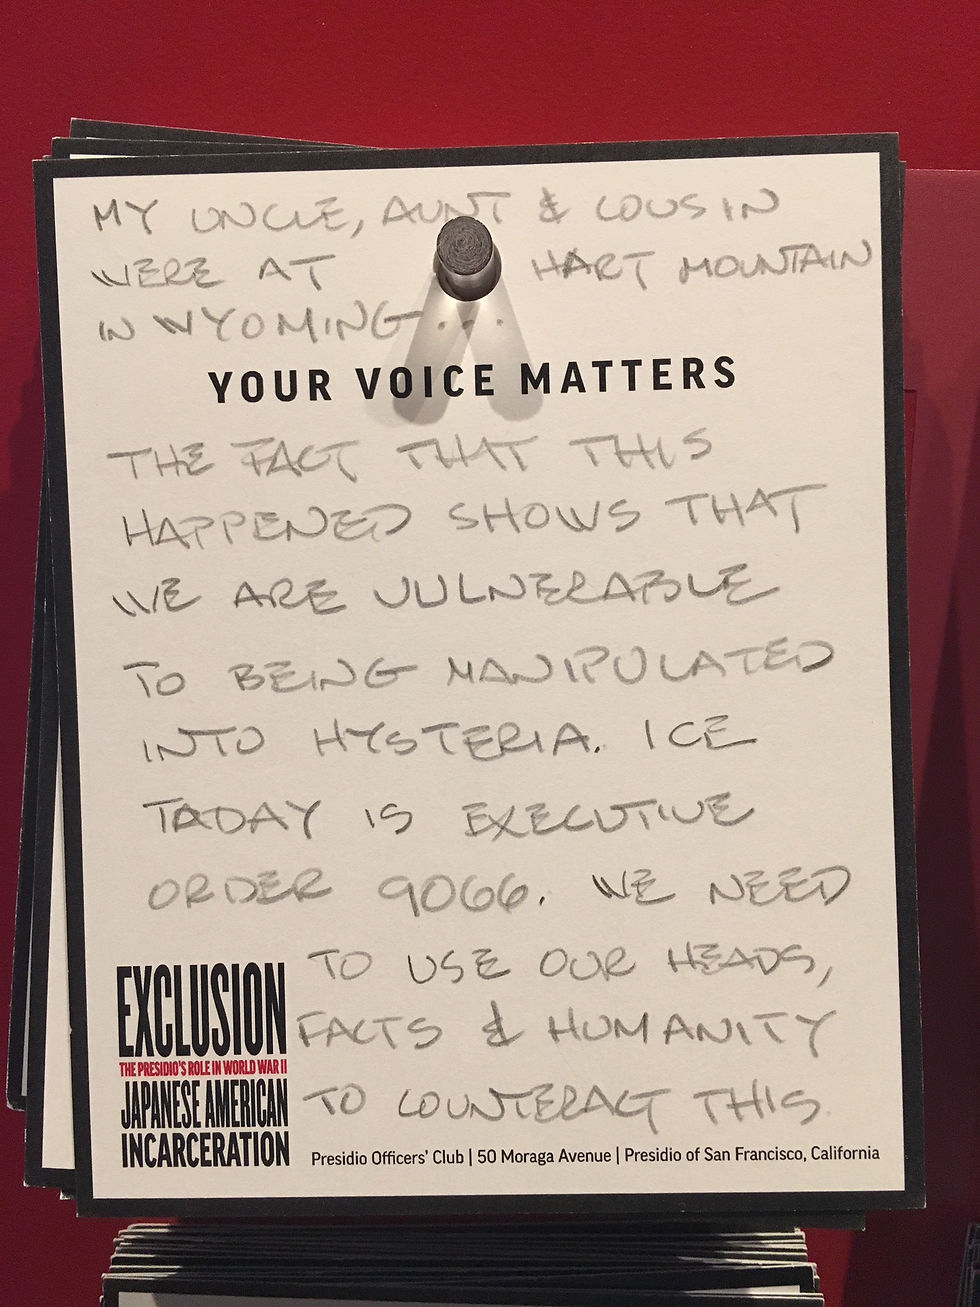 MY UNCLE, AUNT & COUSIN
WERE AT HART MOUNTAIN
IN WYOMING...
YOUR VOICE MATTERS
THE FACT THAT THIS
HAPPENED SHOWS THAT
WE ARE VULNERABLE
TO BEING MANIPULATED
INTO HYSTERIA. ICE
TADAY IS EXECUTIVE
ORDER 9066. WE NEED
TO USE OUR HEADS,
FACTS & HUMANITY
TO COUNTERACT THIS.
EXCLUSION
THE PRESIDIO'S ROLE IN WORLD WAR II
JAPANESE AMERICAN
INCARCERATION
Presidio Officers' Club | 50 Moraga Avenue | Presidio of San Francisco, California